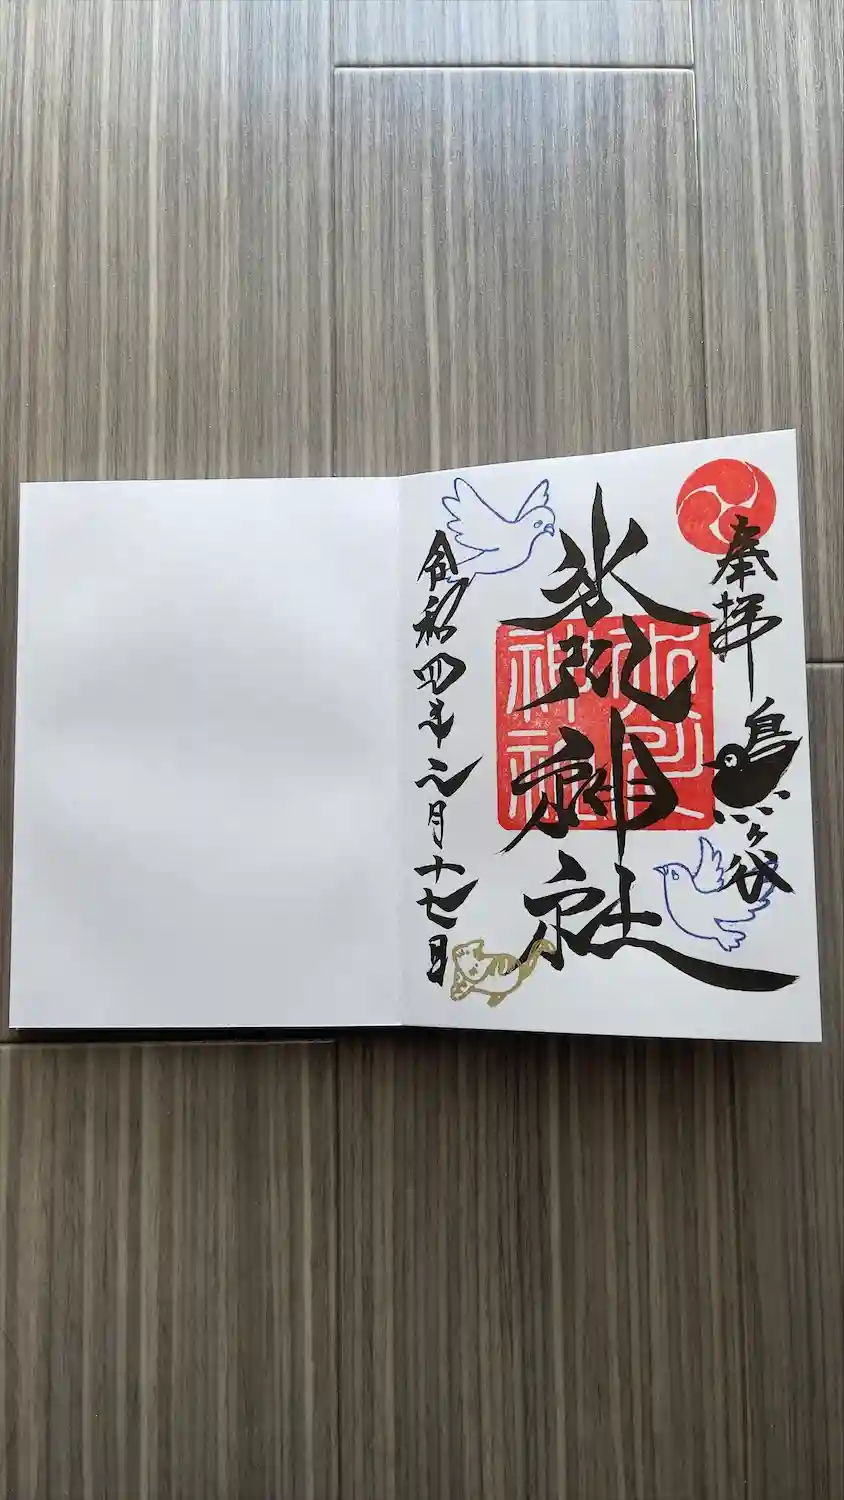 奉拝
鳩ヶ谷
氷川神社
氷川
神社
令和四年 月十七日